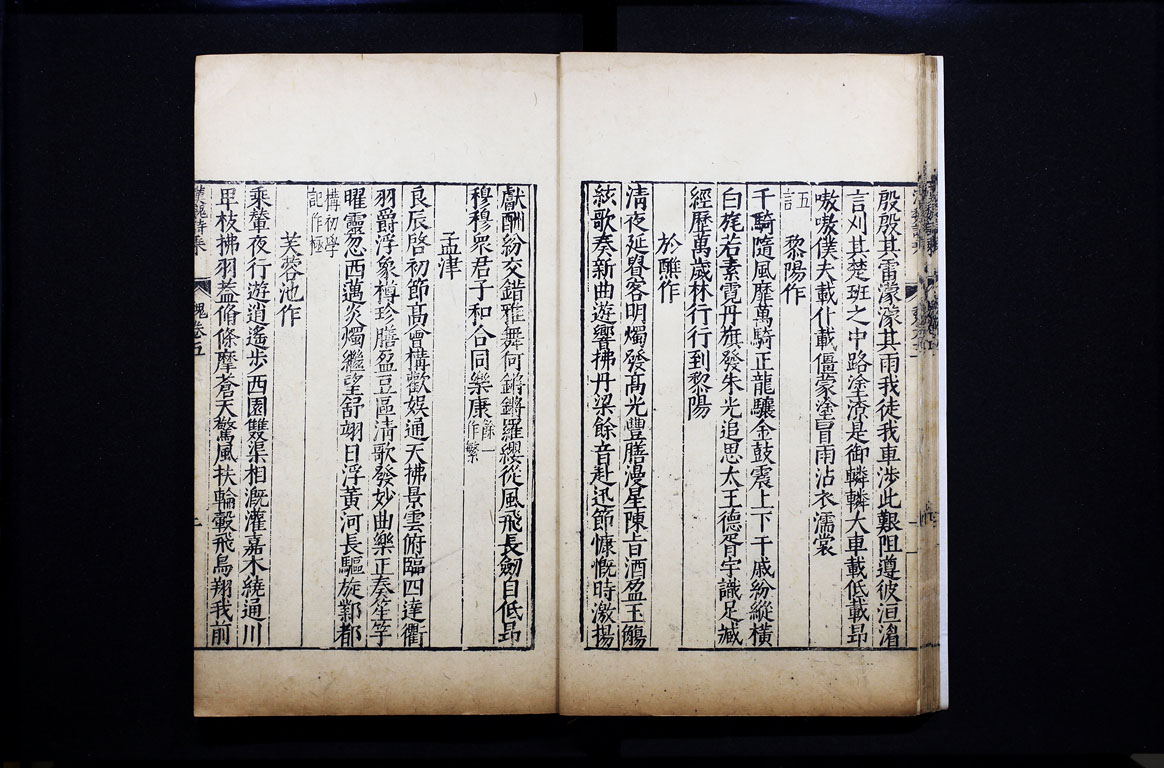 殷殷其雷濛濛其雨我徒我車涉此艱阻遵彼洹湽
言刈其楚班之中路塗潦是御轔轔大車載低載昂
嗷嗷僕夫載仆載僵蒙塗冒雨沾衣濡裳
五言 黎陽作
千騎隨風靡萬騎正龍驤金鼓震上下干戚紛縱橫
白旄若素霓丹旗發朱光追思太王德胥宇識足臧
經歷萬歲林行行到黎陽
於醮作
清夜延貴客明燭發高光豐膳漫星陳旨酒盈玉觴
絃歌奏新曲遊響拂丹梁餘音赴迅節慷慨時激揚
獻酬紛交錯雅舞何鏘鏘羅纓從風飛長劒自低昂
穆穆眾君子和合同樂康餘一作繁
孟津
良辰啓初節高會構歡娛通天拂景雲俯臨四達衢
羽爵浮象樽珍膳盈豆區清歌發妙曲樂正奏笙竽
曜靈忽西邁炎燭繼望舒翊日浮黃河長驅旋鄴都
構初學記作極
芙蓉池作
乘輦夜行遊逍遙步西園雙渠相溉灌嘉木繞通川
卑枝拂羽蓋脩條摩蒼天驚風扶輪轂飛鳥翔我前
漢魏詩集 魏卷五